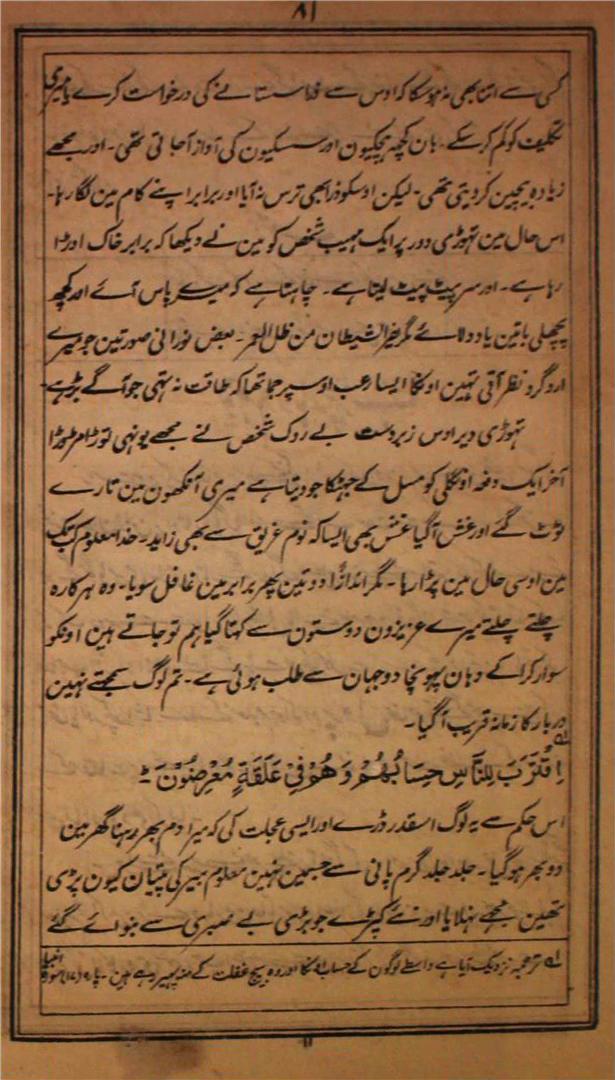 ۸۱
کسی سے اتنا بھی نہ ہوسکا کہ اوس سے ذرا سستا نے کی درخواست کرے یا میری
تکلیف کو کم کر سکے۔ ہان کچھ ہچکیون اور سسکیون کی آواز آجاتی تھی۔ اور مجھے
زیادہ بیچین کر دیتی تھی۔ لیکن اوسکو ذرا بھی ترس نہ آیا اور برابر اپنے کام مین لگا رہا۔
اس حال مین تہوڑی دور پر ایک مہیب شخص کو مین نے دیکھا کہ برابر خاک اوڑا
رہا ہے۔ اور سر پیٹ پیٹ لیتا ہے۔ چاہتا ہے کہ میرے پاس آے اور کچھ
پچھلی باتین یاد دلائے مگر یفر الشیطان من ظل العمر۔ بعض نورانی صورتین جو میرے
ارد گرد نظر آتی تہین اونکا ایسا رعب اوسپر جما تھا کہ طاقت نہ تہی جو آگے بڑہے
تہوڑی دیر اوس زبردست بے روک شخص نے مجھے یونہی توڑا مڑوڑا
آخر ایک دفعہ اونگلی کو مسل کے جہٹکا جو دیتا ہے میری آنکھون مین تارے
ٹوٹ گئے اور غش آگیا غش بھی ایسا کہ نوم غریق سے بھی زاید۔ خدا معلوم کب تک
مین اوسی حال مین پڑا رہا۔ مگر اندازًا دو تین پہر برابر مین غافل سویا۔ وہ ہرکارہ
چلتے چلتے میرے عزیزون دوستون سے کہتا گیا ہم تو جاتے ہین اونکو
سوار کرا کے وہان پہونچا دو جہان سے طلب ہوئی ہے۔ تم لوگ سمجتے نہین
دربار کا زمانہ قریب آگیا۔
اِقْتَرَبَ لِلنَّاسِ حِسَابُهُمْ وَهُمْ فِيْ غَفْلَةٍ مُّعْرِضُوْنَ ۔ لہ
اس حکم سے یہ لوگ اسقدر ڈرے اور ایسی عجلت کی کہ میرا دم بھر رہنا گھر مین
دوبھر ہوگیا۔ جلد جلد گرم پانی سے جسمین نہین معلوم بیر کی پتیان کیون پڑی
تھین مجھے نہلایا اور نئے کپڑے جو بڑی بے صبری سے بنوائے گئے
لہ ترجمہ نزدیک آیا ہے واسطے لوگون کے حساب اونکا اور وہ بیچ غفلت کے منہ پھیر رہے ہین۔ پارہ (۱۷) سورۃ انبیا